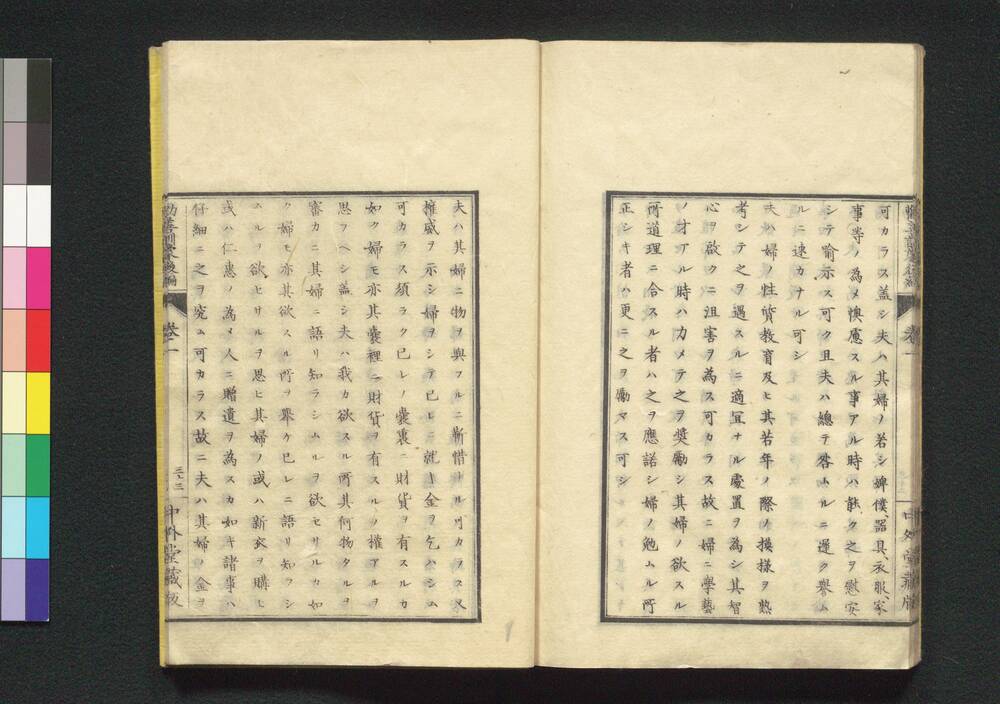 可カラス蓋シ夫ハ其婦ノ若シ婢僕、器具、衣服、家
事等ノ為メ懊慮スル事アル時ハ能ク之ヲ慰安
シテ喩示ス可ク且夫ハ總テ咎ムルニ遲ク譽ム
ルニ速カナル可シ
夫ハ婦ノ性質教育及ヒ其若年ノ際ノ摸樣ヲ熟
考シテ之ヲ遇スルニ適宜ナル處置ヲ為シ其智
心ヲ啟クニ沮害ヲ為ス可カラス故ニ婦ニ學藝
ノ才アル時ハ力メテ之ヲ奬勵シ其婦ノ欲スル
所道理ニ合スル者ハ之ヲ應諾シ婦ノ勉ムル所
正シキ者ハ更ニ之ヲ勵マス可シ
夫ハ其婦ニ物ヲ與フルニ斬惜ナル可カラス又
權威ヲ示シ婦ヲシテ已レニ就キ金ヲ乞ハシム
可カラス須ラク已レノ囊裏ニ財貨ヲ有スルカ
如ク婦モ亦其囊裡ニ財貨ヲ有スルノ權アルヲ
思フヘシ蓋シ夫ハ我カ欲スル所其何物タルヲ
審カニ其婦ニ語リ知ラシムルヲ欲セサルカ如
ク婦モ亦其欲スル所ヲ擧ケ已レニ語リ知ラシ
ムルヲ欲セサルヲ思ヒ其婦ノ或ハ新衣ヲ購ヒ
或ハ仁惠ノ為メ人ニ贈遺ヲ為スカ如キ諸事ハ
仔細ニ之ヲ究ム可カラス故ニ夫ハ其婦ノ金ヲ
勸善訓蒙後編
卷一
三十三
中外堂藏版